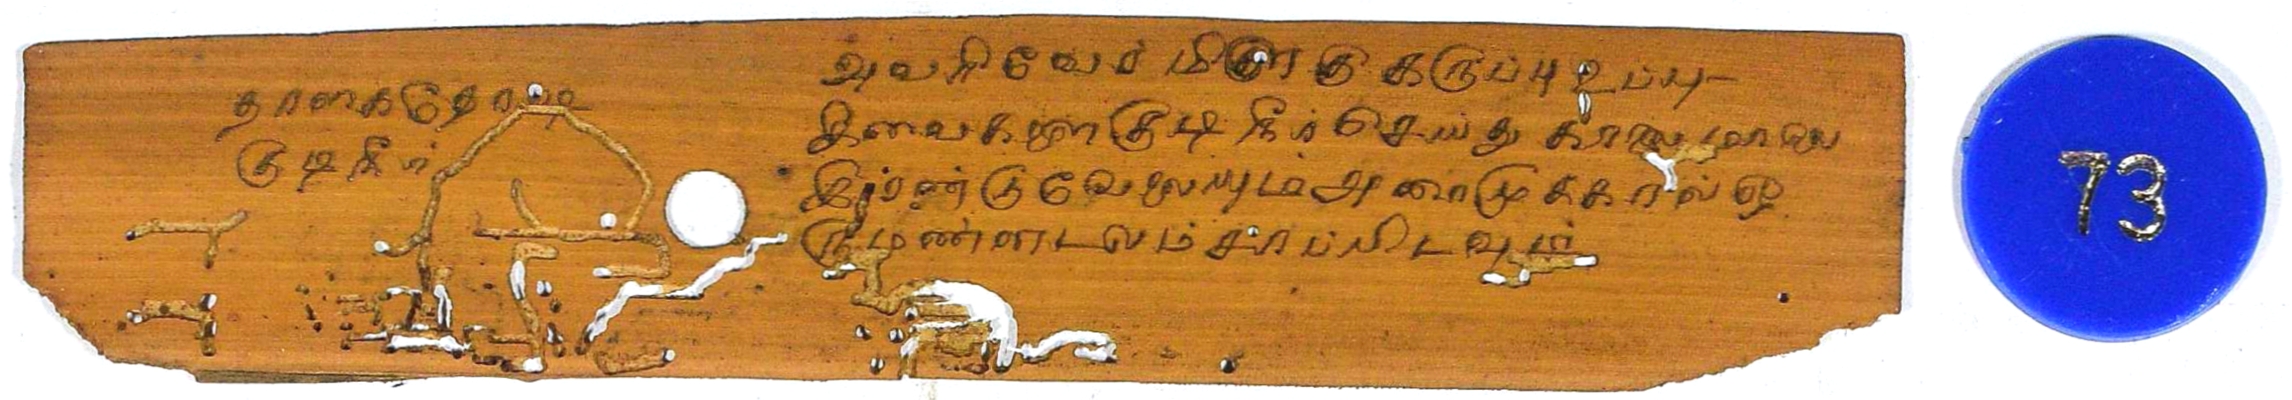 தாளகதோடி
குடிநீர்
அவரிவேர் மிளகு கருப்பு உப்பு
இவைகளை குடிநீர் செய்து காலை மாலை
இரண்டு வேலையும் அரைமுக்கால் ஒ
ரு மண்டலம் சாப்பிடவும்
73